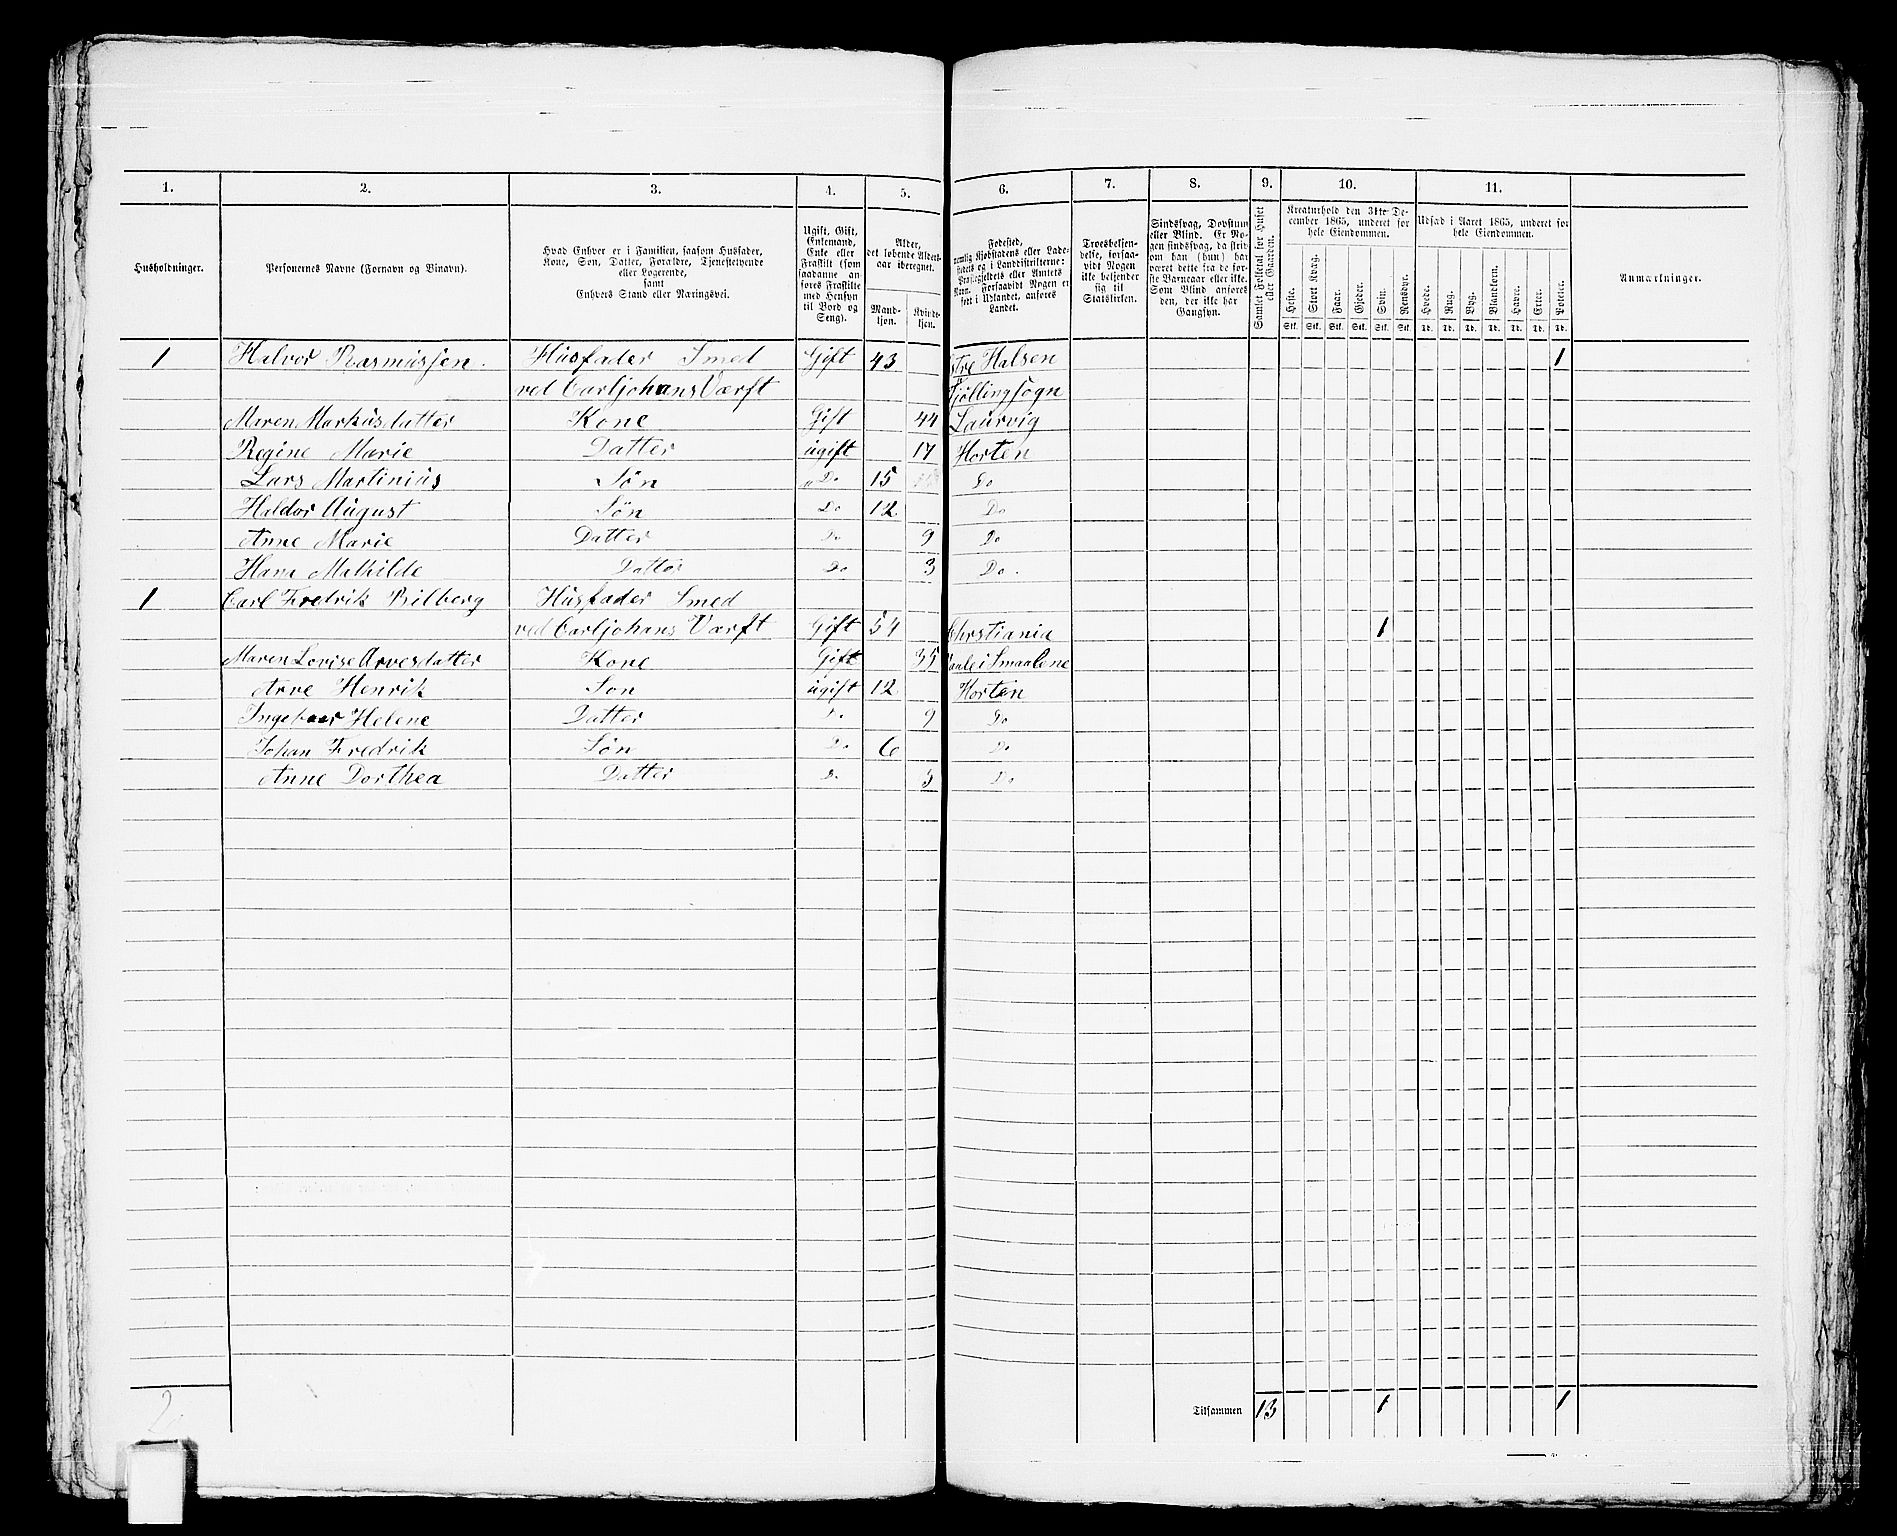 1. 2. 3. 4. 5. 6. 7. 8. 9. 10. 11.
Husholdninger.
Personernes Navne (Fornavn og Binavn).
Hvad Enhver er i Familien, saasom Husfader,
Kone, Søn, Datter, Forældre, Tjenestetyende
eller Logerende,
samt
Enhvers Stand eller Næringsvei.
Ugift, Gift,
Enkemand,
Enke eller
Fraskilt (som
saadanne an-
føres Fraskilte
med Hensyn
til Bord og
Seng).
Alder,
det løbende Alders-
aar iberegnet.
Mand-
kjøn.
Kvinde-
kjøn.
Fødested,
nemlig Kjøbstadens eller Lade-
stedets og i Landdistrikterne:
Præstegjeldets eller Amtets
Navn. Forsaavidt Nogen er
født i Udlandet, anføres
Landet.
Troesbekjen-
delse, forsaa-
vidt Nogen
ikke bekjender
sig til
Statskirken.
Sindssvag, Døvstum
eller Blind. Er No-
gen sindssvag, da skriv
om han (hun) har
været dette fra de før-
ste Barneaar eller ikke.
Som Blind anføres
den, der ikke har
Gangsyn.
Samlet Folketal for Huset
eller Gaarden.
Kreaturhold den 31te De-
cember 1865, underet for
hele Eiendommen.
Heste. Stort Kvæg. Faar. Gjeder. Svin. Rensdyr.
Stk. Stk. Stk. Stk. Stk. Stk.
Udsæd i Aaret 1865, underet for
hele Eiendommen.
Hvede. Rug. Byg. Blandkorn. Havre. Erter. Poteter.
Td. Td. Td. Td. Td. Td. Td.
Anmærkninger.
1 Halvor Rasmussen. Husfader Smed Gift 43 Halsen 1
ved Carljohans Værft Tjøllingsogn
Maren Markusdatter Kone Gift 44 Laurvig
Regine Marie Datter ugift 17 Horten
Lars Martinius Søn " Do 15 Do
Haldor August Søn Do 12 Do
Anne Marie Datter Do 9 Do
Hana Mathilde Datter Do 3 Do.
1 Carl Fredrik Bilberg Husfader Smed
ved Carljohans Værft Gift 54 Chrstiania 1
Maren Lovise Arvesdatter Kone Gift 35 i Smaalene
Arve Henrik Son ugift 12 Horten
Ingebaar Helene Datter Do 9 Do
Johan Fredrik Søn Do 6 Do
Anne Dorthea Datter Do 3 Do
2 Tilsammen 13 1 1